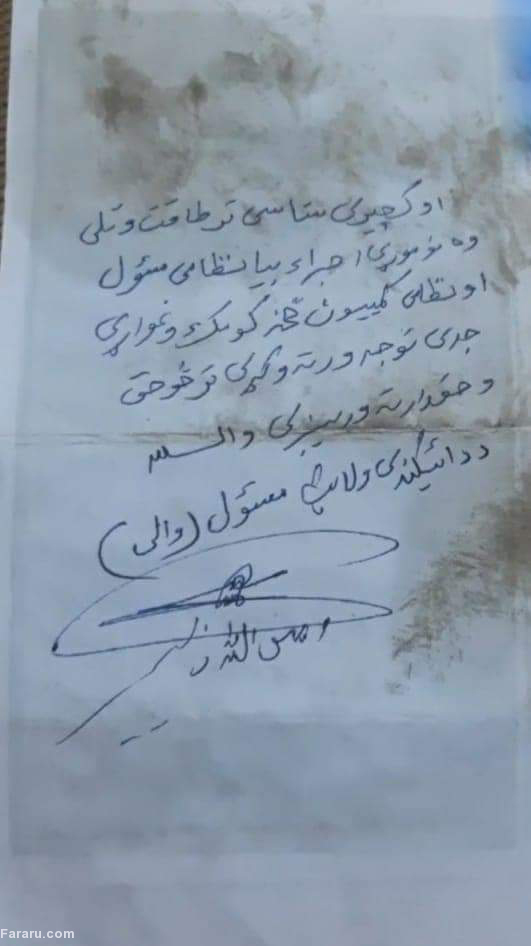 او کچیری ستاسی تر طاقت وتلی
وه نو موږ اجراء بیا نظامی مسئول
او نظامی کمیسون څخه کومک وغواړی
جدی توجه ورته وکړی تر څو حق
و حقدار ته ورسیږی والسلام
د دائیکندی ولایت مسئول (والی)
الله
Fararu.com